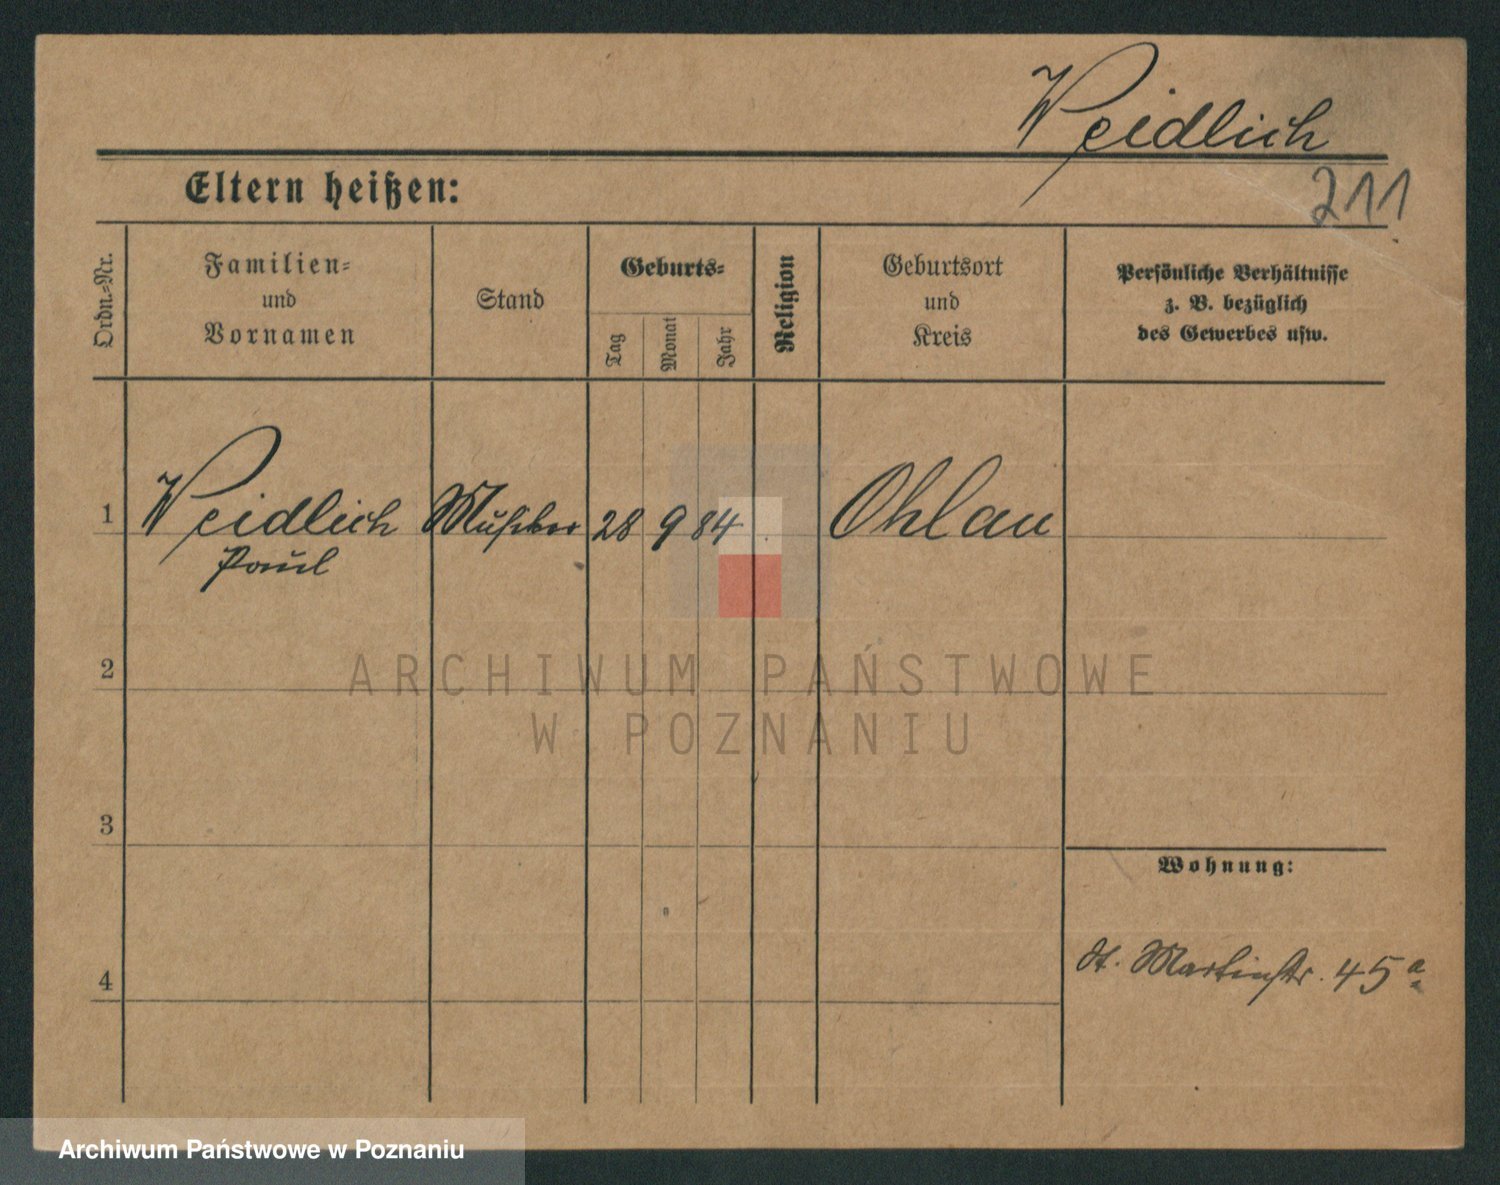 Weidlich
Eltern heißen:
211
Ordn.-Nr.
Familien-
und
Vornamen
Stand
Geburts-
Tag
Monat
Jahr
Religion
Geburtsort
und
Kreis
Persönliche Verhältnisse
z. B. bezüglich
des Gewerbes usw.
1 Weidlich 28 9 84 Ohlau
Paul
2
ARCHIWUM PAŃSTWOWE
W POZNANIU
3
Wohnung:
St. Martinstr. 45a
4
Archiwum Państwowe w Poznaniu